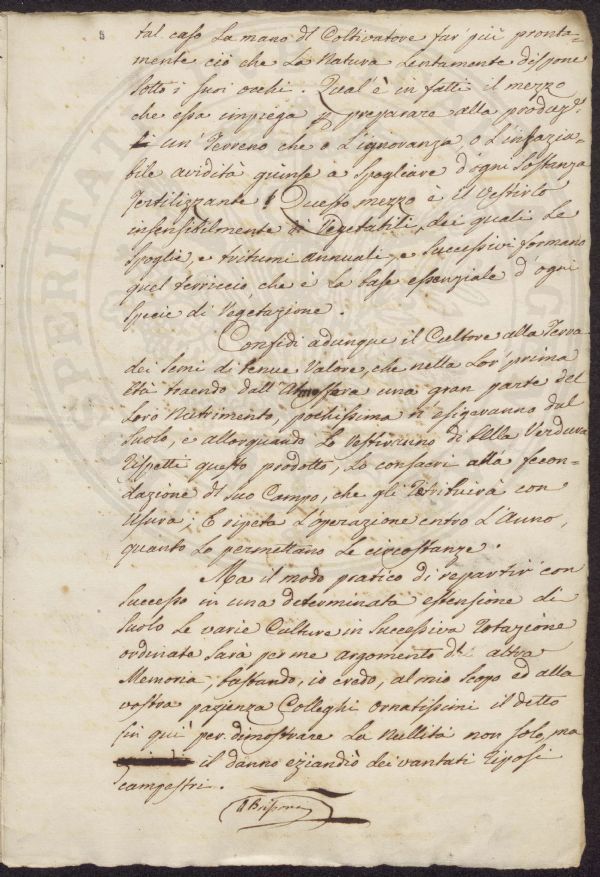 tal caso La mano dl Coltivatore far più pronta=
mente ciò che La Natura Lentamente dispone
sotto i suoi occhi. Qual'è in fatti il mezzo
che essa impiega p preparare alla produze.
un' Terreno che o L'ignoranza, o L'insazia=
bile avidità giunse a spogliare d'ogni sostanza
fertilizzante? Questo mezzo è il vestirlo
insensibilmente di Vegetabili, dei quali Le
spoglie, e tritumi annuali, e successivi formano
quel terriccio che è La base essenziale d'ogni
specie di Vegetazione.
Confidi adunque il Cultore alla Terra
dei semi di tenue Valore, che nella Lor' prima
età traendo dall'Atmosfera una gran parte del
Loro Nutrimento, pochissimo n' esigeranno dal
suolo, e allorquando Lo vestiranno di bella Verdura
rispetti questo prodotto, Lo consacri alla fecon=
dazione dl suo Campo, che gli retribuirà con
usura; E ripeta L'operazione entro L'Anno,
quanto Lo permettano Le circostanze.
Ma il modo pratico di repartir con
successo in una determinata estensione di
suolo Le varie Culture in successiva rotazione
ordinata sarà per me argomento dl altra
Memoria, bastando, io credo, al mio scopo ed alla
vostra pazienza Colleghi ornatissimi il detto
fin quì per dimostrare La Nullità non solo, ma
il danno eziandiò dei vantati riposi
campestri.